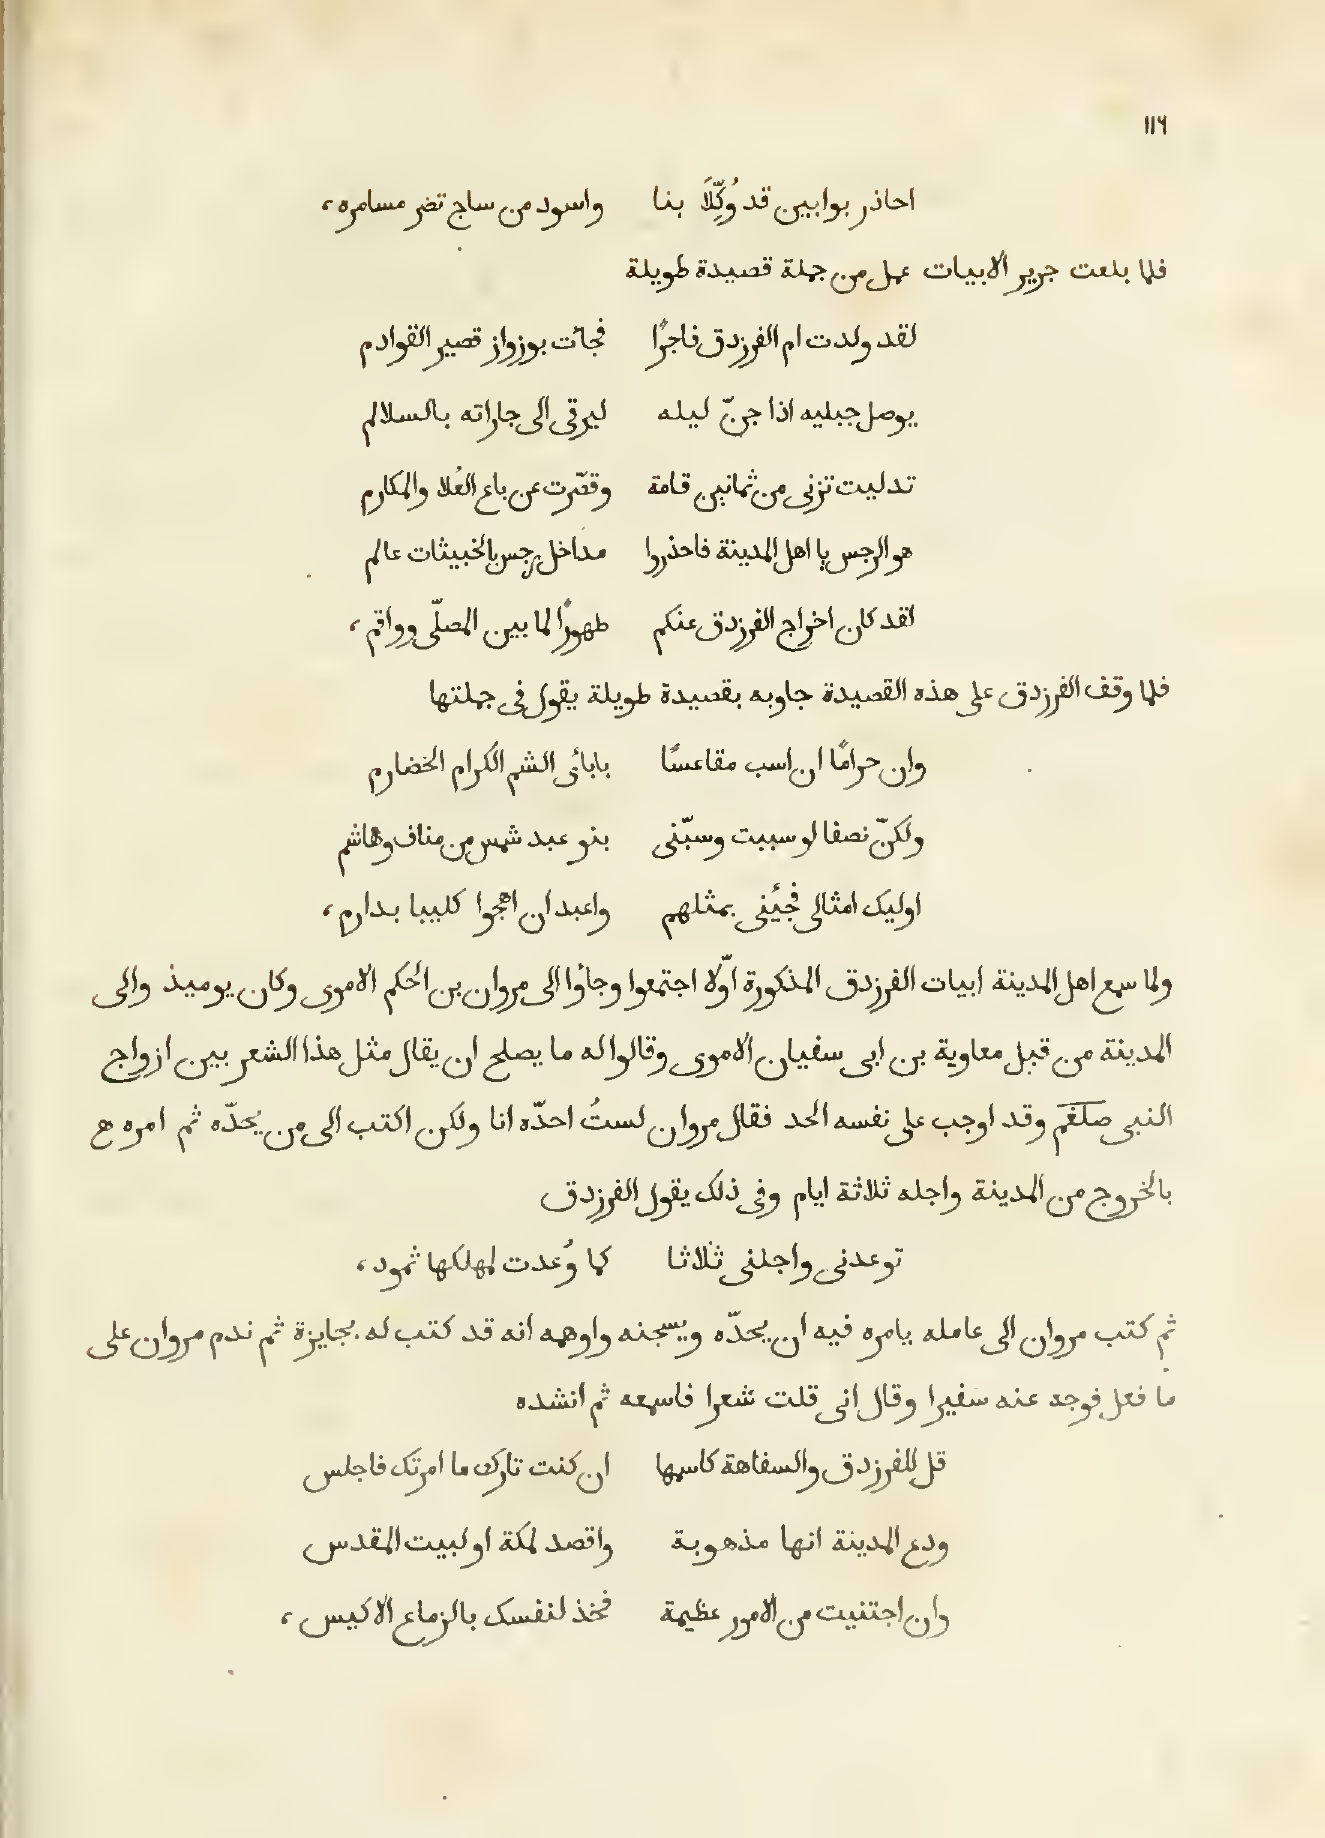 ١١٦
احاذر بوابين قد وُكِّلَا بنا واسود من ساج تضر مسامره،
فلما بلعت جرير الابيات عمل من جملة قصيدة طويلة
لقد ولدت ام الفرزدق فاجرًا فجائت بوزواز قصير القوادم
يوصل جبليه اذا جنّ ليله ليرقى الى جاراته بالسلالم
تدليت تزنى من ثمانين قامة وقصّرت عن باع العُلا والمكارم
هو الرجس يا اهل المدينة فاحذروا مداخل رجس بالخبيثات عالم
لقد كان اخراج الفرزدق عنكم طهورًا لما بين المصلّى وواقم،
فلما وقف الفرزدق على هذه القصيدة جاوبه بقصيدة طويلة يقول فى جملتها
وان حرامًا ان اسب مقاعسًا بابائى الشم الكرام الخضارم
ولكنّ نصفا لو سببت وسبّنى بنو عبد شمس من مناف وهاشم
اوليك امثالى فجِئنى بمثلهم واعبد ان اهجوا كليبا بدارم،
ولما سمع اهل المدينة ابيات الفرزدق المذكورة اوّلا اجتمعوا وجاؤا الى مروان بن الحكم الاموى وكان يوميذ والى
المدينة من قبل معاوية بن ابى سفيان الاموى وقالوا له ما يصلح ان يقال مثل هذا الشعر بين ازواج
النبى صلعم وقد اوجب على نفسه الحد فقال مروان لستُ احدّه انا ولكن اكتب الى من يحدّه ثم امره ع
بالخروج من المدينة واجله ثلاثة ايام وفى ذلك يقول الفرزدق
توعدنى واجلنى ثلاثا كما وُعدت لمهلكها ثمود،
ثم كتب مروان الى عامله يامره فيه ان يحدّه ويسجنه واوهمه انه قد كتب له بجايزة ثم ندم مروان على
ما فعل فوجه عنه سفيرا وقال انى قلت شعرا فاسمعه ثم انشده
قل للفرزدق والسفاهة كاسمها ان كنت تارك ما امرتك فاجلس
ودع المدينة انها مذهوبة واقصد لمكة او لبيت المقدس
وان اجتنيت من الامور عظيمة فخذ لنفسك بالزماع الاكيس،